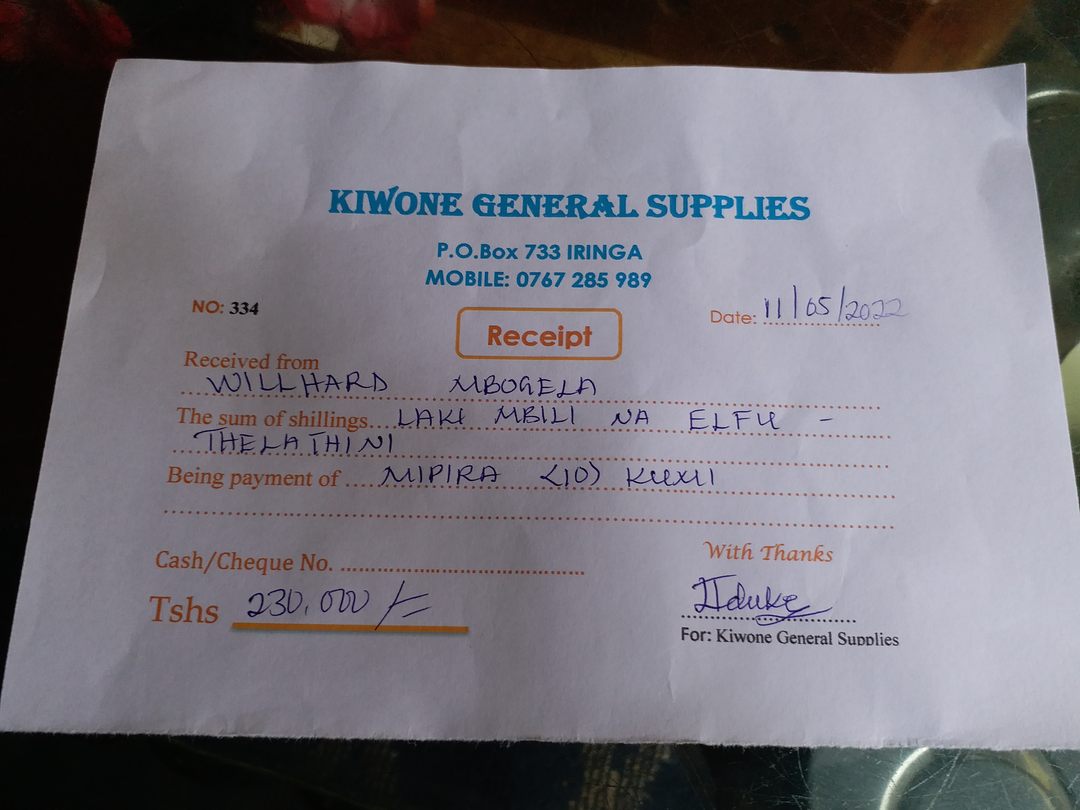 KIWONE GENERAL SUPPLIES
P.O.Box 733 IRINGA
MOBILE: 0767 285 989
NO: 334
Date: 11/05/2022
Receipt
Received from
WILLHARD MBOGELA
The sum of shillings... LAKI MBILI NA ELFU -
THELATHINI
Being payment of .... MIPIRA (10)
Cash/Cheque No. ........................................
With Thanks
Tshs 230,000/=
For: Kiwone General Supplies